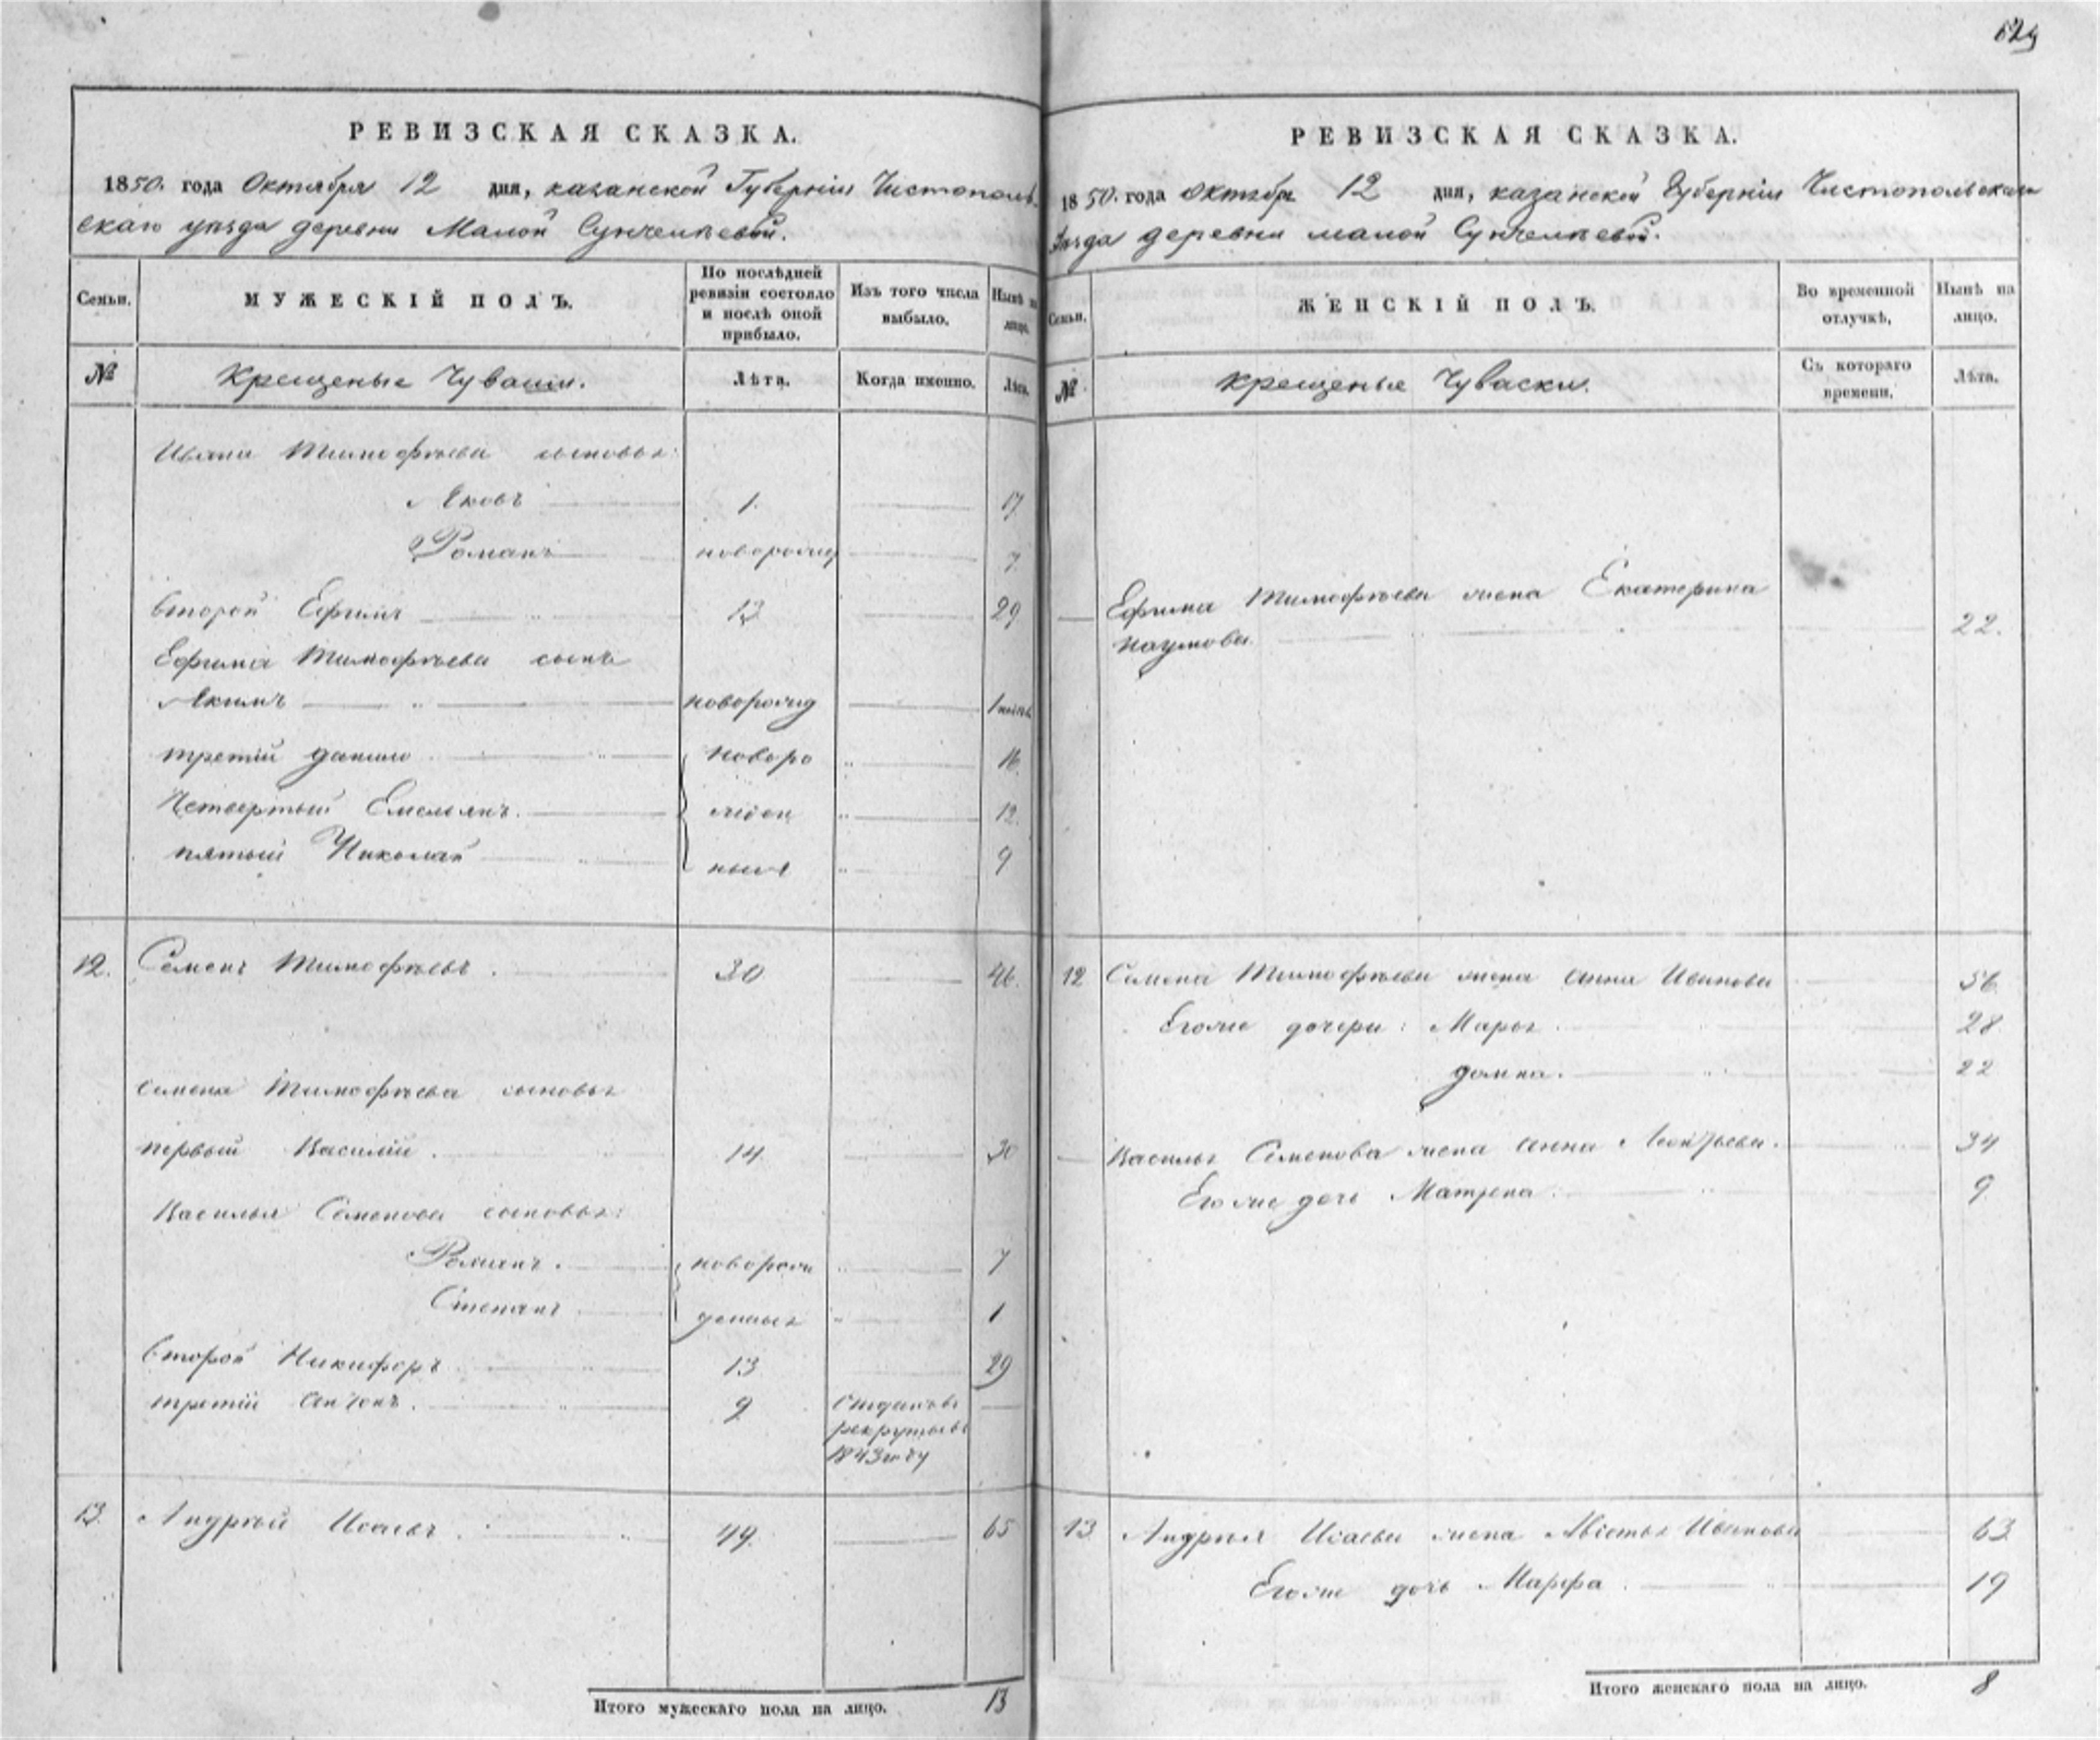 629
РЕВИЗСКАЯ СКАЗКА.
1850. года Октября 12 дня, казанской Губернiи Чистополь-
скаго уѣзда деревни Малой Сунчелѣевой.
Семьи.
МУЖЕСКIЙ ПОЛЪ.
По послѣдней ревизiи состояло и послѣ оной прибыло.
Изъ того числа выбыло.
Нынѣ на лицо.
№
Крещеные Чуваши.
Лѣта.
Когда именно.
Лѣта.
Ивана Тимофѣева сыновья:
Яковъ 1. 17
Романъ новорожд 7
второй Ефимъ 13 29
Ефима Тимофѣева сынъ
Якимъ новорожд 1
третiй данило новоро 16
Четвертый Емельянъ. жден 12.
пятый Николай ныя 9
12. Семенъ Тимофѣевъ. 30 46.
семена Тимофѣева сыновья
первый Василiй. 14 30
Василья Семенова сыновья:
Романъ. новорож 7
Степанъ денныя 1
второй Никифоръ 13 29
третiй антонъ. 9 Отданъ въ
рекруты въ
1843 году
13. Андрей Исаевъ. 49. 65
Итого мужескаго пола на лицо. 13
РЕВИЗСКАЯ СКАЗКА.
1850. года Октября 12 дня, казанской Губернiи Чистопольскаго
уѣзда деревни малой Сунчелѣевой.
Семьи.
ЖЕНСКIЙ ПОЛЪ.
Во временной отлучкѣ,
Нынѣ на лицо.
№
крещеные Чуваски.
Съ котораго времени.
Лѣта.
Ефима Тимофѣева жена Екатерина
Наумова 22.
12 Семена Тимофѣева жена анна Иванова 56
Егоже дочери: Марья 28
домна. 22
Василья Семенова жена анна Леонтьева. 34
Егоже дочь Матрена. 9
13 Андрея Исаева жена Иванова 63
Егоже дочь Марфа 19
Итого женскаго пола на лицо. 8